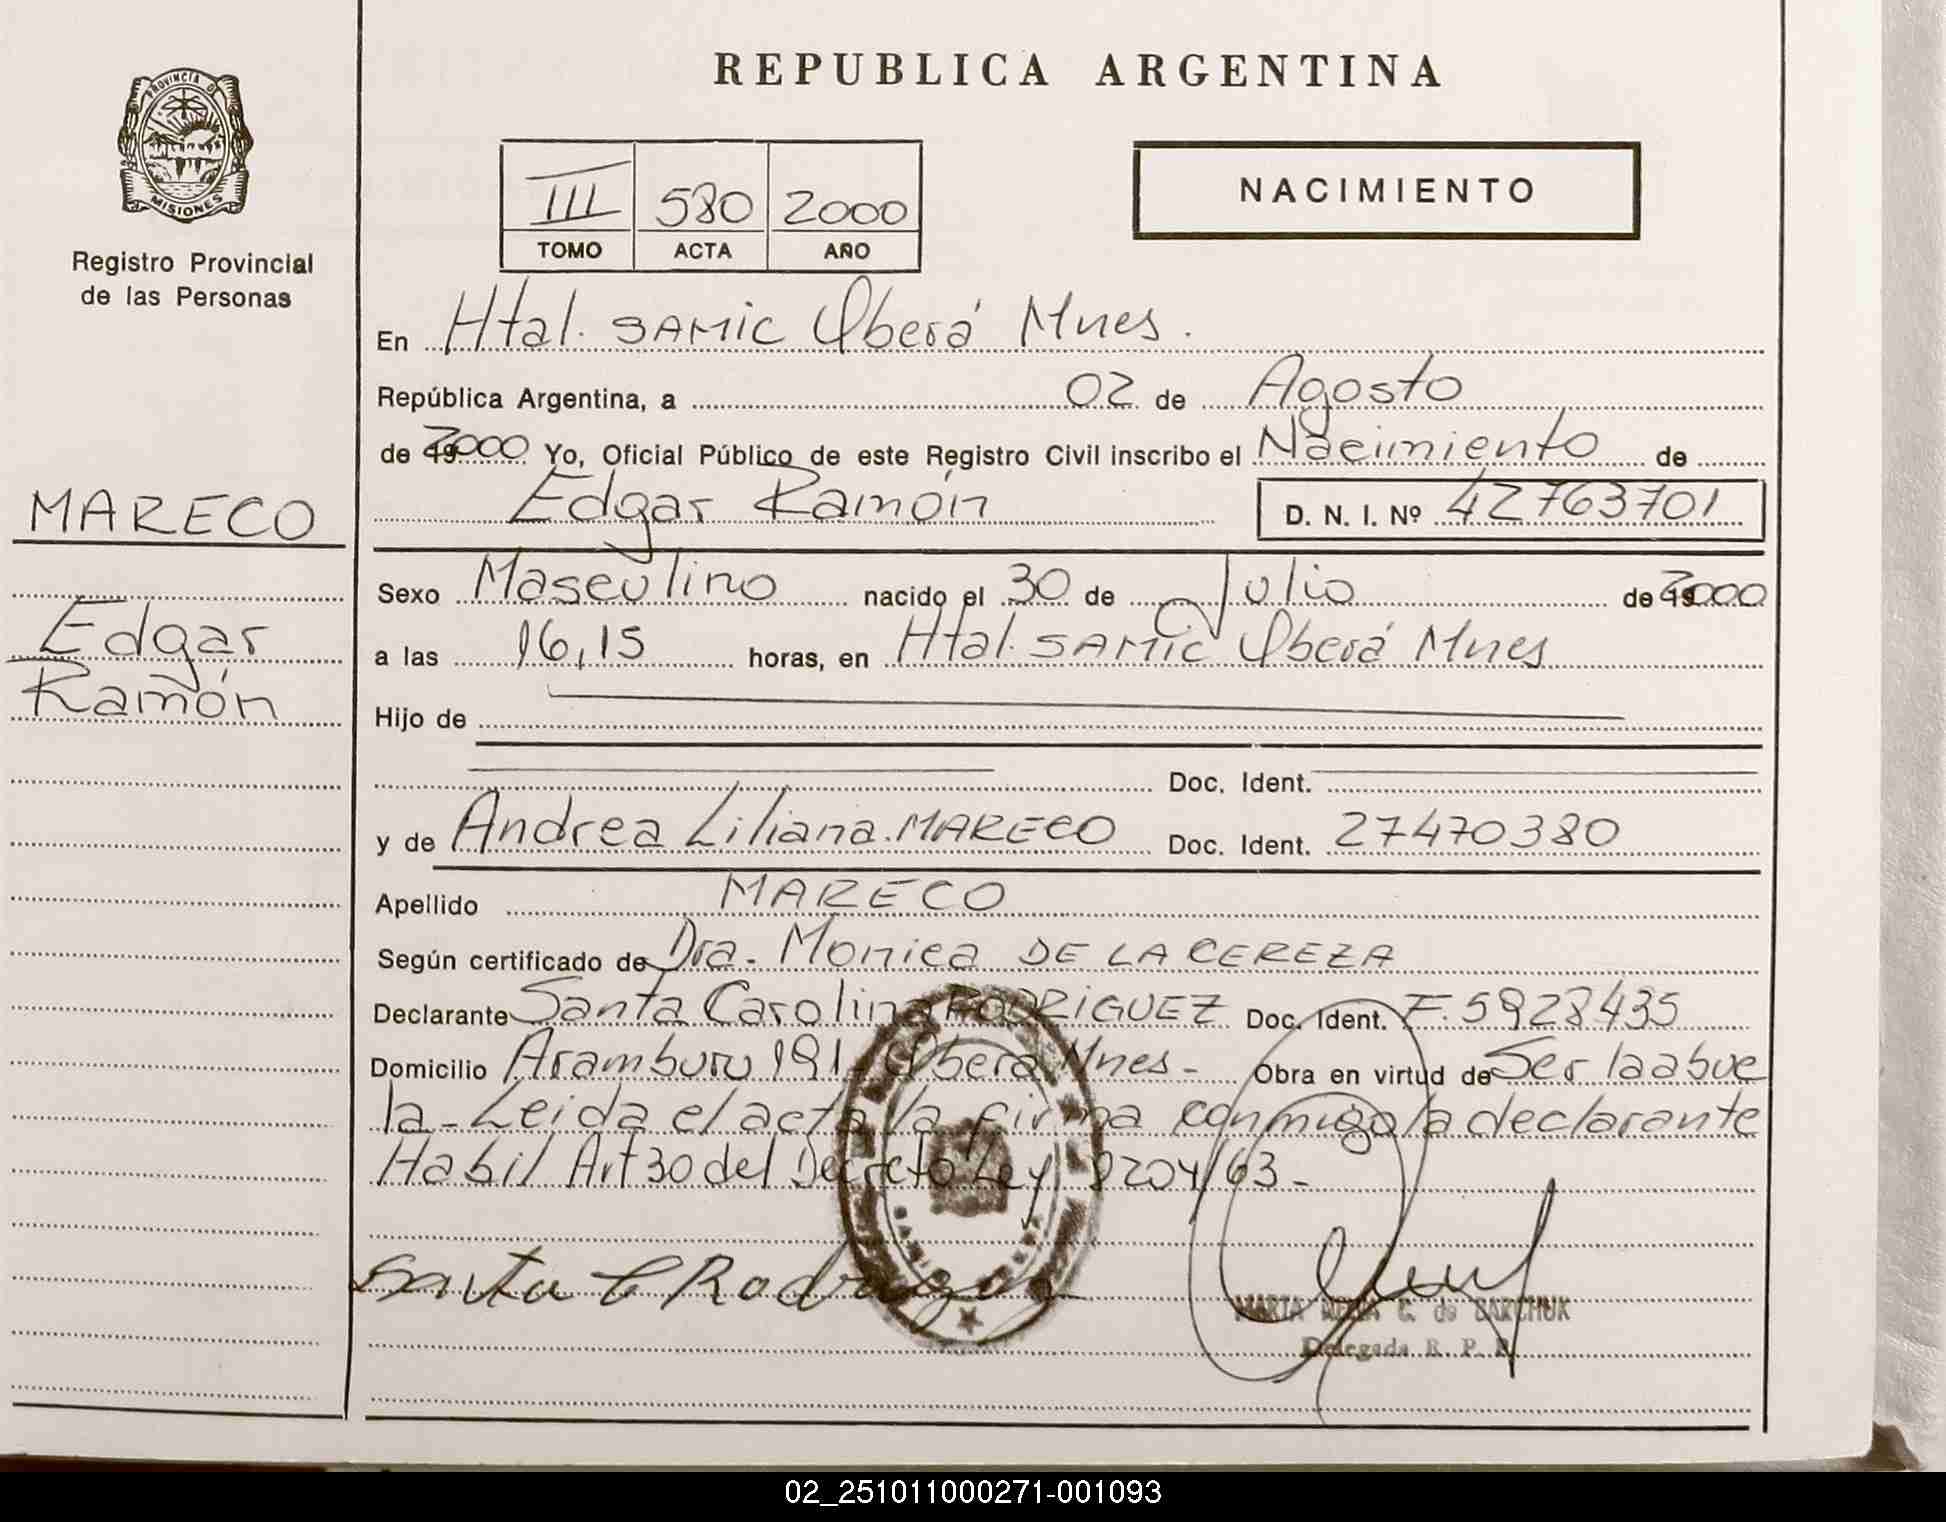 REPUBLICA ARGENTINA
PROVINCIA D
MISIONES
Registro Provincial
de las Personas
MARECO
Edgar
Ramón
III 580 2000
TOMO ACTA AÑO
NACIMIENTO
En Htal. SAMIC Oberá Mnes.
República Argentina, a 02 de Agosto
de 2000 Yo, Oficial Público de este Registro Civil inscribo el Nacimiento de
Edgar Ramón D. N. I. Nº 42763701
Sexo Masculino nacido el 30 de Julio de 2000
a las 16,15 horas, en Htal. SAMIC Oberá Mnes
Hijo de
Doc. Ident.
y de Andrea Liliana MARECO Doc. Ident. 27470380
Apellido MARECO
Según certificado de Dra. Monica DE LA CEREZA
Declarante Santa Carolina RODRIGUEZ Doc. Ident. F. 5928435
Domicilio Aramburu 191 Oberá Mnes - Obra en virtud de Ser la abue
la - Leida el acta la firma conmigo la declarante
Habil Art 30 del Decreto Ley 8204/63 -
Santa C Rodriguez
MARTA C. de
Delegada R. P. P.
02_251011000271-001093